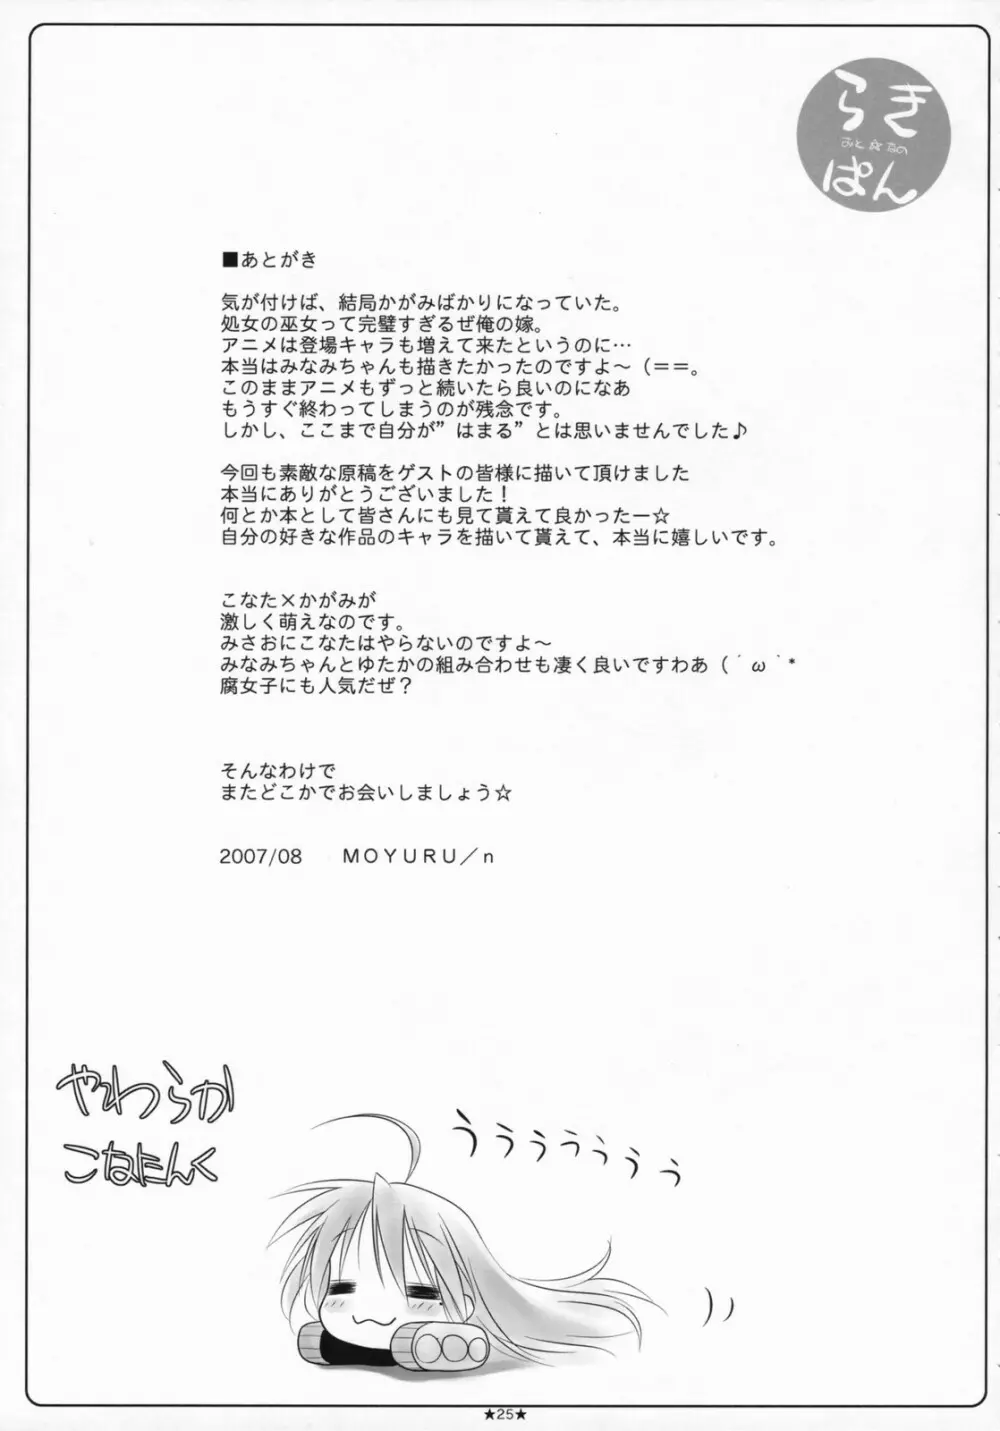 らき
おとなの
ぱん
■あとがき
気が付けば、結局かがみばかりになっていた。
処女の巫女って完璧すぎるぜ俺の嫁。
アニメは登場キャラも増えて来たというのに…
本当はみなみちゃんも描きたかったのですよ～（＝＝。
このままアニメもずっと続いたら良いのになあ
もうすぐ終わってしまうのが残念です。
しかし、ここまで自分が”はまる”とは思いませんでした♪
今回も素敵な原稿をゲストの皆様に描いて頂けました
本当にありがとうございました！
何とか本として皆さんにも見て貰えて良かったー☆
自分の好きな作品のキャラを描いて貰えて、本当に嬉しいです。
こなた×かがみが
激しく萌えなのです。
みさおにこなたはやらないのですよ～
みなみちゃんとゆたかの組み合わせも凄く良いですわあ（゛ω゛*
腐女子にも人気だぜ？
そんなわけで
またどこかでお会いしましょう☆
2007/08　ＭＯＹＵＲＵ／ｎ
やわらか
こなたんく
うぅぅぅぅぅぅ
★25★